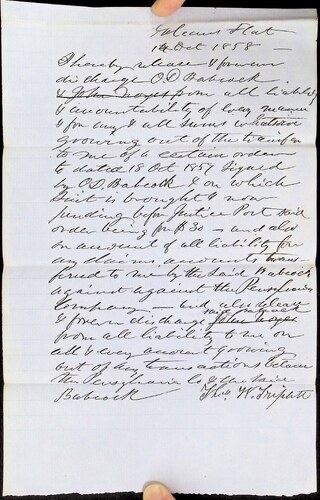 Orleans Flat
14 Oct 1858 —
I hereby release & forever
discharge O.D. Babcock
& John Noyes from all liability
& accountability of every manner
& for any & all sums whatever
growing out of the transfer
to me of a certain order
dated 18 Oct 1857 signed
by O.D. Babcock & on which
Suit is brought & now
pending before Justice Port said
order being for $30 — and also
on account of all liability for
any claims accounts trans-
fered to me by the said Babcock
against against the Pensylvania
Company — and also release
& forever discharge said Babcock
John Noyes
from all liability to me on
all & every account growing
out of any transactions between
the Pensylvania Co & the said
Babcock Thos. W. Triplett